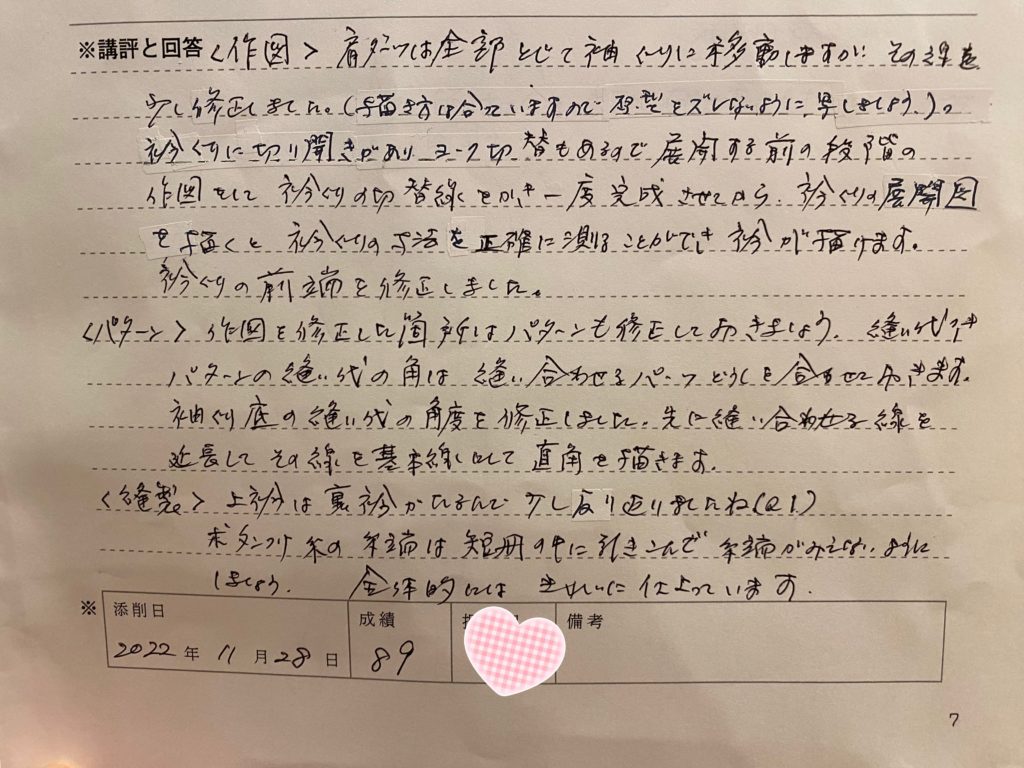 ※講評と回答〈作図〉肩ダーツは全部とじて袖ぐりに移動しますが その線を
少し修正しました。(描き方は合っていますので原型をズレないように写しましょう。)。
衿ぐりに切り開きがあり ヨーク切替もあるので展開する前の段階の
作図をして 衿ぐりの切替線をかき一度完成させてから、衿ぐりの展開図
を描くと 衿ぐりの寸法を正確に測ることができ 衿が描けます。
衿ぐりの前端を修正しました。
〈パターン〉作図を修正した箇所はパターンも修正しておきましょう。縫い代付き
パターンの縫い代の角は 縫い合わせるパーツどうしを合わせておきます。
袖ぐり底の縫い代の角度を修正しました。先に縫い合わせる線を
延長してその線を基本線にして直角を描きます。
〈縫製〉上衿は裏衿が 少し反り返りましたね(Q1)
ボタンつけ糸の糸端は短冊の中に引きこんで糸端がみえないように
しましょう。 全体的には きれいに仕上っています.
※ 添削日 成績 備考
2022年 11月28日 89
7